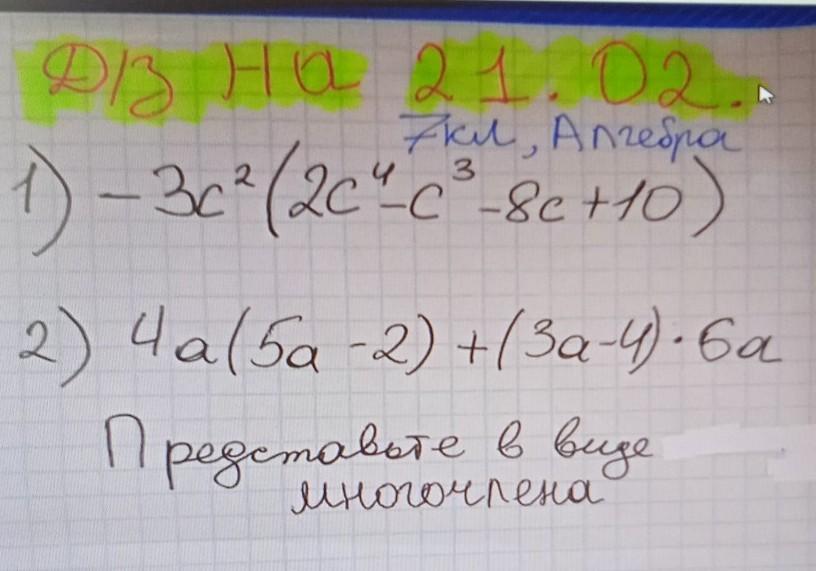 Д/З на 21.02.
7кл, Алгебра
1) -3c²(2c⁴-c³-8c+10)
2) 4a(5a-2)+(3a-4)·6a
Представьте в виде
многочлена